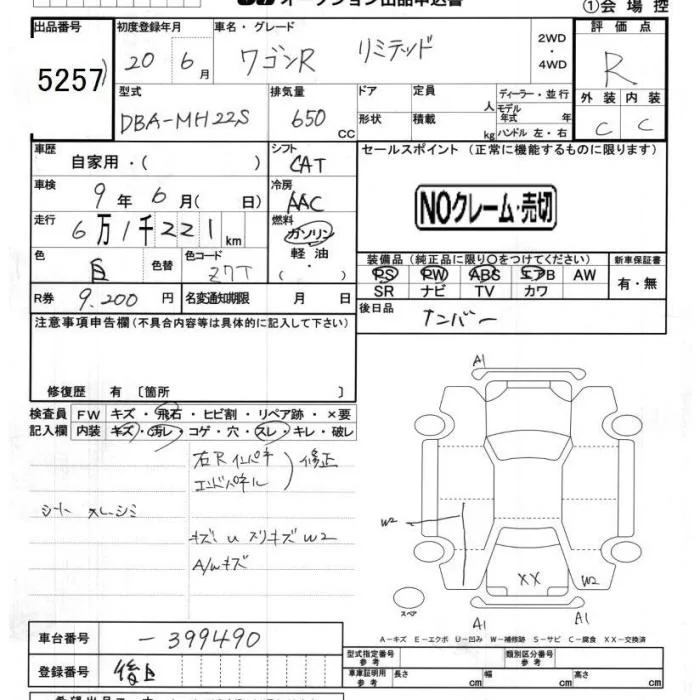 オークション出品申込書
①会場控
出品番号
5257
初度登録年月
20 6月
車名・グレード
ワゴンR リミテッド
2WD
・
4WD
評価点
R
外装 内装
C C
型式
DBA-MH22S
排気量
650 CC
ドア
定員 人
形状
積載 kg
ディーラー・並行
モデル年式 年
ハンドル 左・右
車歴
自家用・( )
車検
9年6月( 日)
走行
6万1千221km
色
白
色替
色コード
Z7T
シフト
CAT
冷房
AAC
燃料
ガソリン
・
軽油
・
( )
セールスポイント (正常に機能するものに限ります)
NOクレーム・売切
装備品(純正品に限り○をつけてください)
PS PW ABS エアB AW
SR ナビ TV カワ
新車保証書
有・無
R券 9.200円
名変通知期限 月 日
後日品
ナンバー
注意事項申告欄(不具合内容等は具体的に記入して下さい)
修復歴 有〔箇所 〕
検査員記入欄
FW キズ・飛石・ヒビ割・リペア跡・×要
内装 キズ・汚レ・コゲ・穴・スレ・キレ・破レ
右Rインパネ
エンドパネル
修正
シート スレ シミ
キズ U スリキズ W2
A/wキズ
A1
W2
XX
W2
A1
A1
スペア
A－キズ E－エクボ U－凹み W－補修跡 S－サビ C－腐食 XX－交換済
車台番号
-399490
登録番号
後日
型式指定番号
参考
類別区分番号
参考
車庫証明用
参考
長さ cm
幅 cm
高さ cm